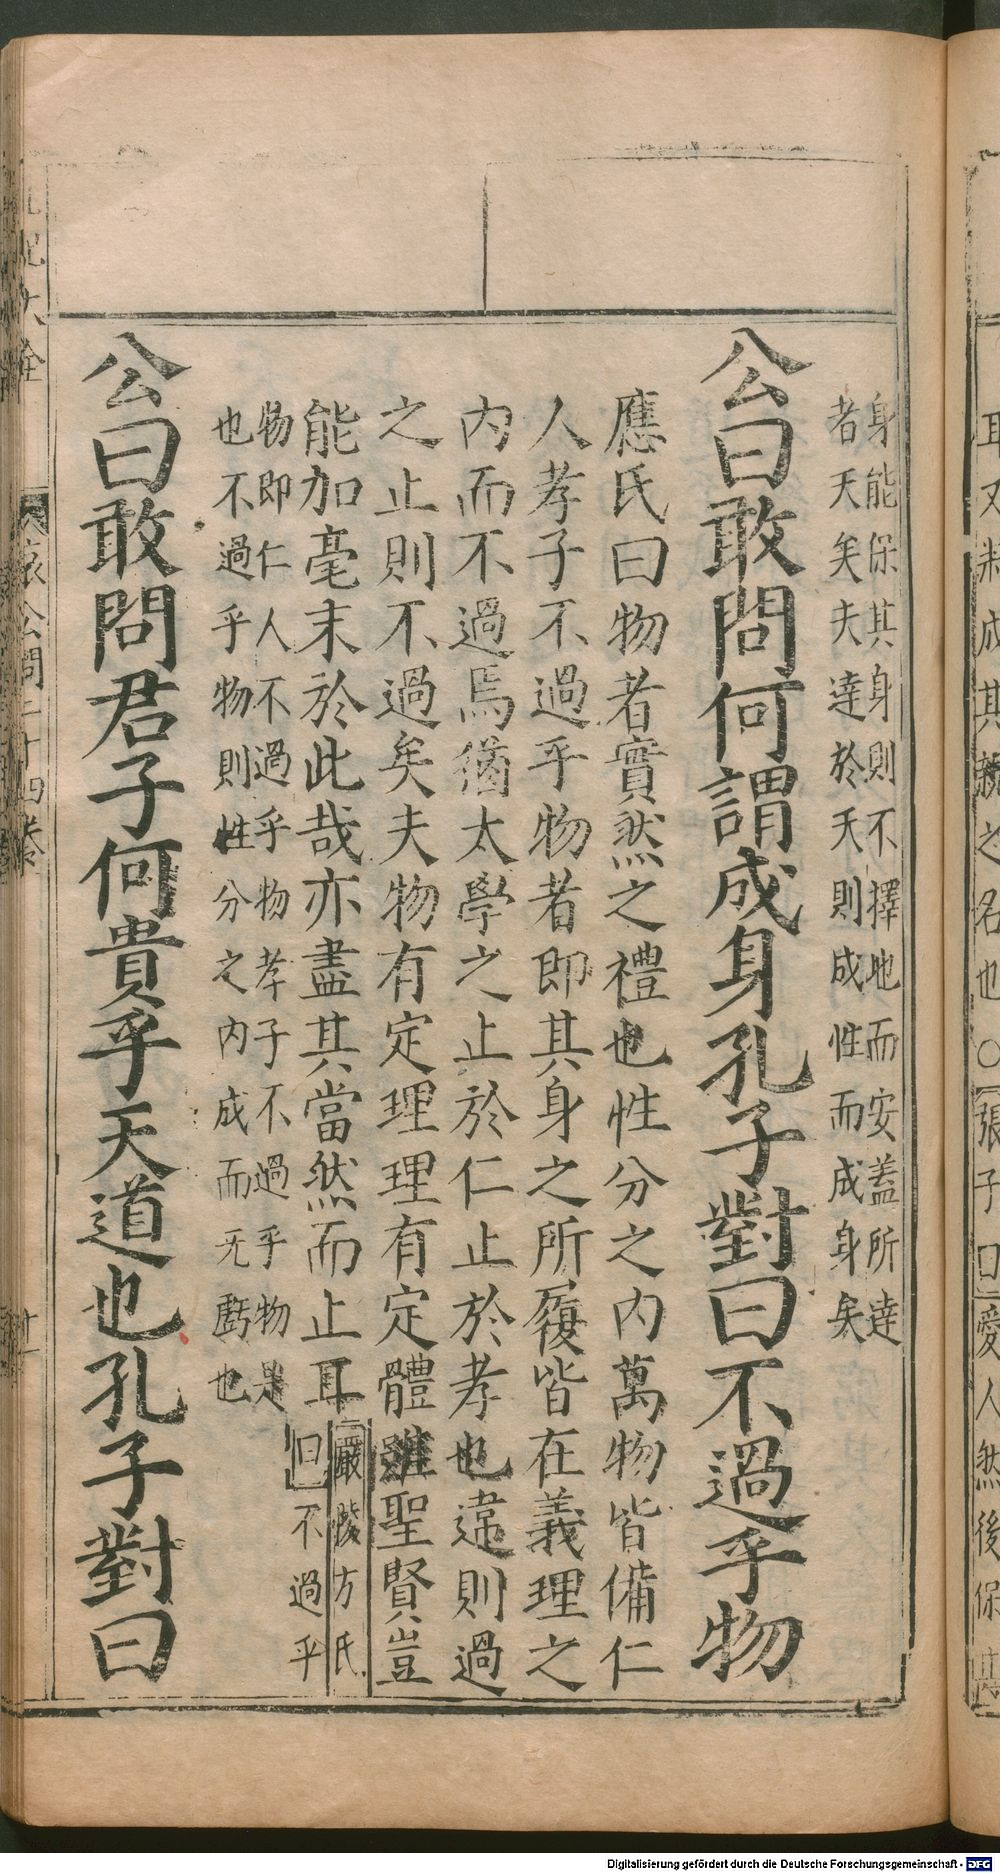 身能保其身則不擇地而安蓋所達
者天矣夫達於天則成性而成身矣
公曰敢問何謂成身孔子對曰不過乎物
應氏曰物者實然之禮也性分之內萬物皆備仁
人孝子不過乎物者即其身之所履皆在義理之
內而不過焉猶太學之止於仁止於孝也違則過
之止則不過矣夫物有定理理有定體雖聖賢豈
能加毫末於此哉亦盡其當然而止耳
嚴陵方氏
曰不過乎
物即仁人不過乎物孝子不過乎物是
也不過乎物則性分之內成而无虧也
公曰敢問君子何貴乎天道也孔子對曰
哀公問二十四卷
耳又未成其親之名也○張子曰愛人然後保其
Digitalisierung gefördert durch die Deutsche Forschungsgemeinschaft - DFG